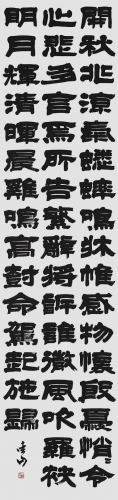 開秋兆涼氣蟋蟀鳴牀帷感物懷殷憂悄々令
心悲多言焉所告繁辭將訴誰微風吹羅袂
明月耀清暉晨雞鳴高樹命駕起旋歸